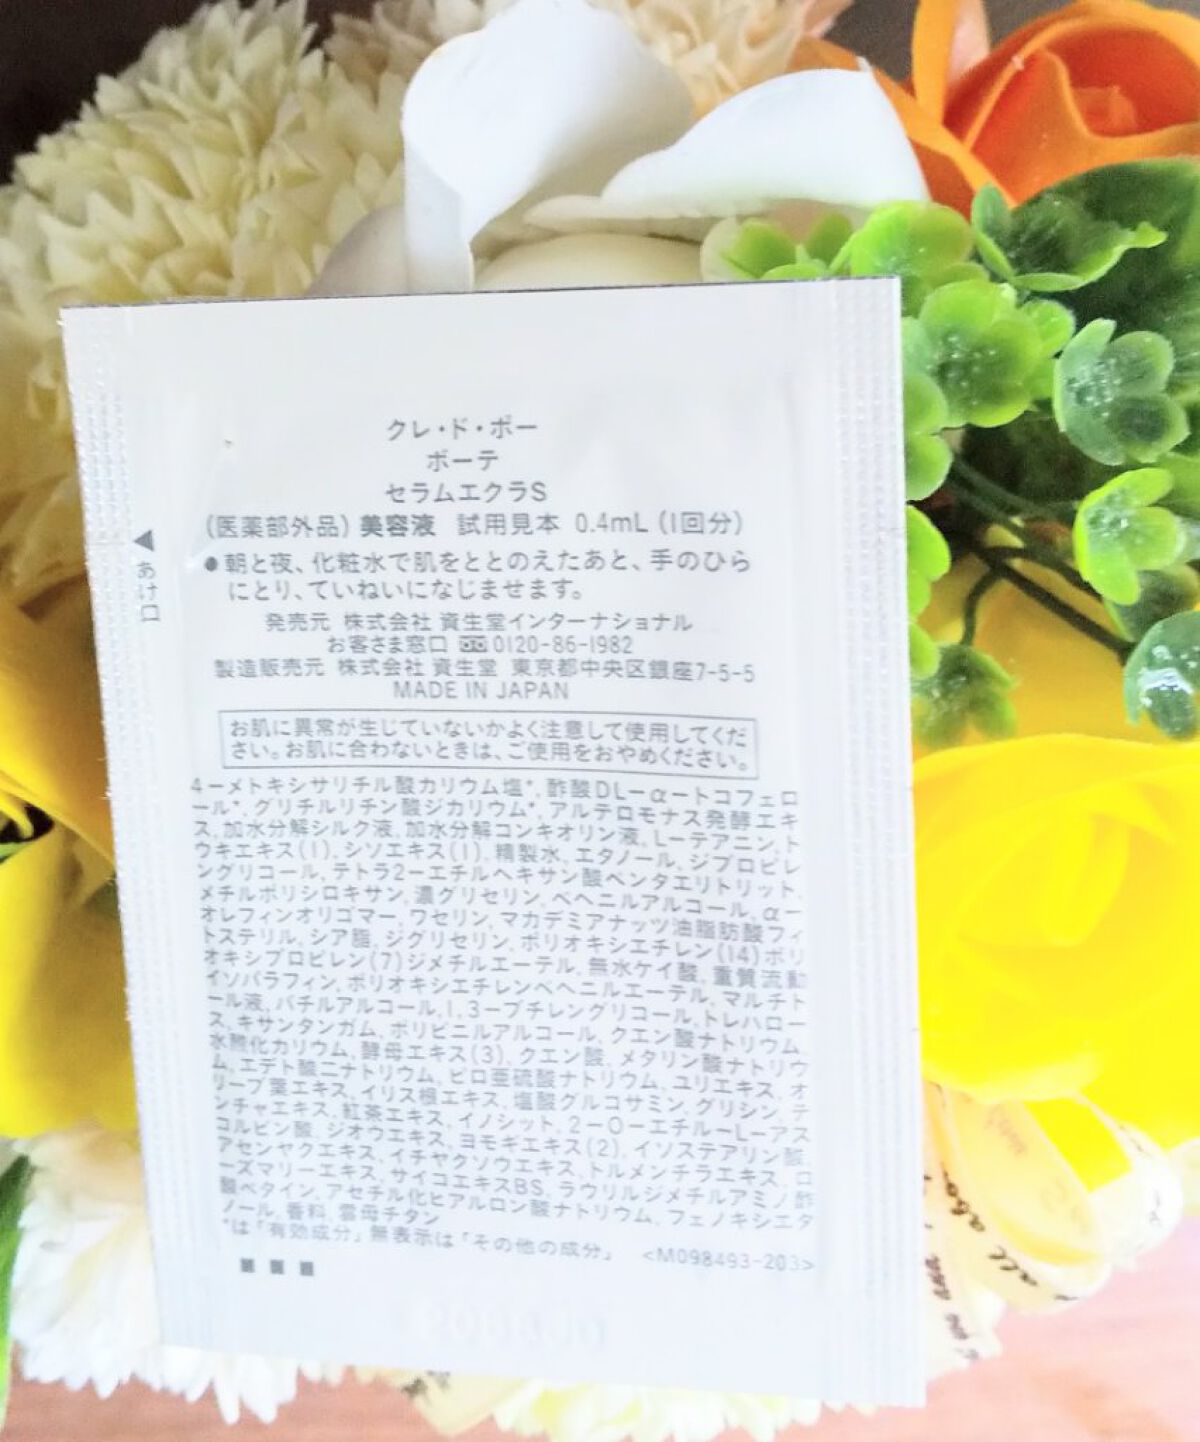 クレ・ド・ポー
ボーテ
セラムエクラS
(医薬部外品) 美容液 試用見本 0.4mL (1回分)
●朝と夜、化粧水で肌をととのえたあと、手のひら
にとり、ていねいになじませます。
発売元 株式会社 資生堂インターナショナル
お客さま窓口 0120-86-1982
製造販売元 株式会社 資生堂 東京都中央区銀座7-5-5
MADE IN JAPAN
お肌に異常が生じていないかよく注意して使用してくだ
さい。お肌に合わないときは、ご使用をおやめください。
4-メトキシサリチル酸カリウム塩*, 酢酸DL-α-トコフェロ
ール*, グリチルリチン酸ジカリウム*, アルテロモナス発酵エキ
ス, 加水分解シルク液, 加水分解コンキオリン液, L-テアニン, ト
ウキエキス(1), シソエキス(1), 精製水, エタノール, ジプロピレ
ングリコール, テトラ2-エチルヘキサン酸ペンタエリトリット,
メチルポリシロキサン, 濃グリセリン, ベヘニルアルコール, α-
オレフィンオリゴマー, ワセリン, マカデミアナッツ油脂肪酸フィ
トステリル, シア脂, ジグリセリン, ポリオキシエチレン(14)ポリ
オキシプロピレン(7)ジメチルエーテル, 無水ケイ酸, 重質流動
イソパラフィン, ポリオキシエチレンベヘニルエーテル, マルチト
ール液, バチルアルコール, 1,3-ブチレングリコール, トレハロー
ス, キサンタンガム, ポリビニルアルコール, クエン酸ナトリウム,
水酸化カリウム, 酵母エキス(3), クエン酸, メタリン酸ナトリウ
ム, エデト酸二ナトリウム, ピロ亜硫酸ナトリウム, ユリエキス, オ
リーブ葉エキス, イリス根エキス, 塩酸グルコサミン, グリシン, テ
ンチャエキス, 紅茶エキス, イノシット, 2-O-エチル-L-アス
コルビン酸, ジオウエキス, ヨモギエキス(2), イソステアリン酸,
アセンヤクエキス, イチヤクソウエキス, トルメンチラエキス, ロ
ーズマリーエキス, サイコエキスBS, ラウリルジメチルアミノ酢
酸ベタイン, アセチル化ヒアルロン酸ナトリウム, フェノキシエタ
ノール, 香料, 雲母チタン
*は「有効成分」無表示は「その他の成分」 <M098493-203>
◀あけ口